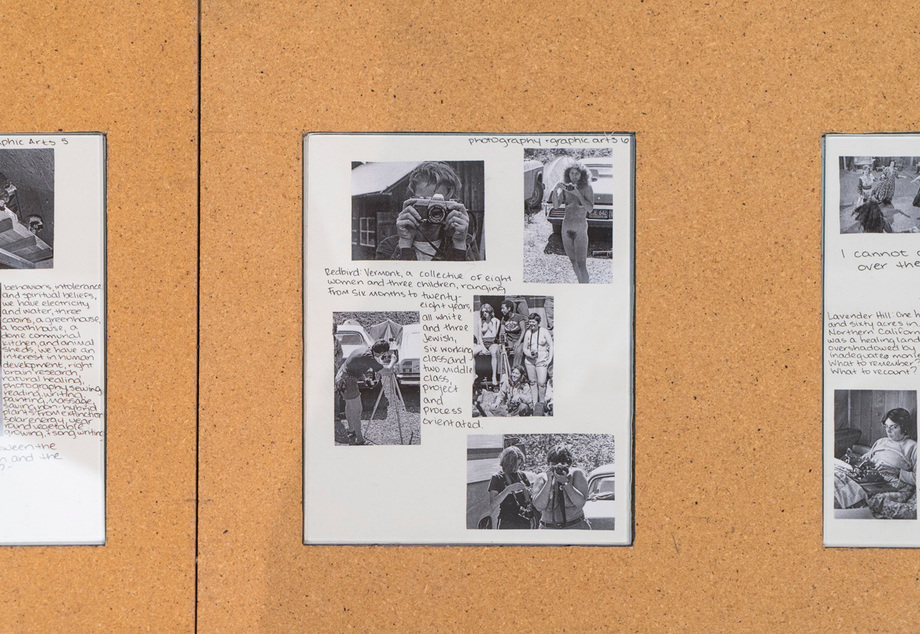 graphic Arts 5
behaviors, intolerance
and spiritual beliefs,
we have electricity
and water, three
cabins, a greenhouse,
a bathhouse, a
dome communal
kitchen, and animal
sheds, we have an
interest in human
development, right
brain research,
natural healing,
photography, sewing
reading, writing,
painting, massage,
saving non-hybrid
plants from extinction
solar energy, wear
and vegetable
growing, + song writing
between the
and the
?
photography + graphic arts 6
Redbird: Vermont, a collective of eight
women and three children, ranging
from six months to twenty-
eight years,
all white
and three
Jewish,
six working
class and
two middle
class,
project
and
process
orientated.
I cannot
over the
Lavender Hill: One h
and sixty acres in
Northern Califor
was a healing land
overshadowed by
inadequate mon
What to remember
What to recount?